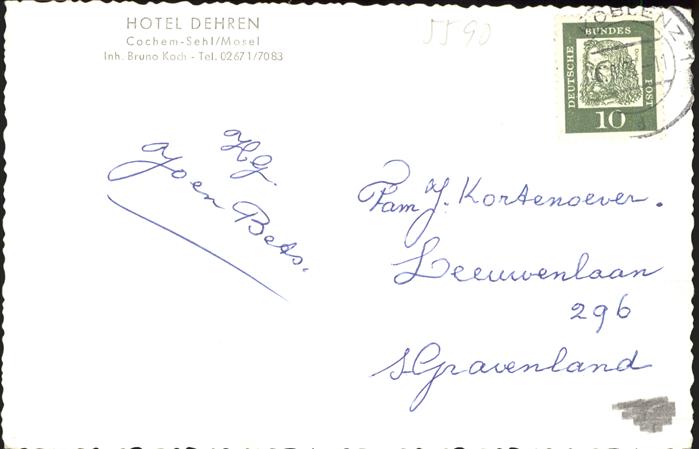 HOTEL DEHREN
Cochem-Sehl/Mosel
Inh. Bruno Koch - Tel. 02671/7083
5590
KOBLENZ 1
DEUTSCHE BUNDES POST
10
Hg.
Joen Bets.
Fam J. Kortenoever.
Leeuwenlaan
296
s Gravenland